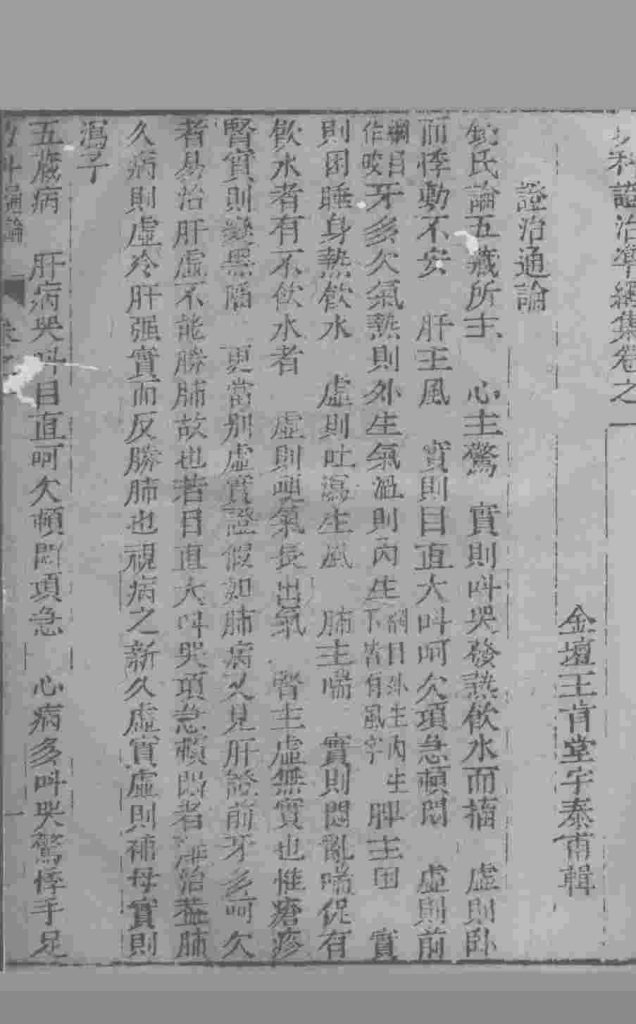 科證治準繩集卷之
金壇王肯堂宇泰甫輯
證治通論
錢氏論五臟所主　心主驚　實則叫哭發熱飲水而搐　虛則臥
而悸動不安　肝主風　實則目直大叫呵欠項急頓悶　虛則前
作咬牙多欠氣熱則外生氣溫則內生綱目外生內生下皆有風字　脾主困　實
則困睡身熱飲水　虛則吐瀉生風　肺主喘　實則悶亂喘促有
飲水者有不飲水者　虛則哽氣長出氣　腎主虛無實也惟瘡疹
腎實則變黑陷　更當別虛實證假如肺病又見肝證前牙多呵欠
者易治肝虛不能勝肺故也若目直大叫哭項急頓悶者難治蓋肺
久病則虛冷肝强實而反勝肺也視病之新久虛實虛則補母實則
瀉子
五臟病　肝病哭叫目直呵欠頓悶項急　心病多叫哭驚悸手足
科通論